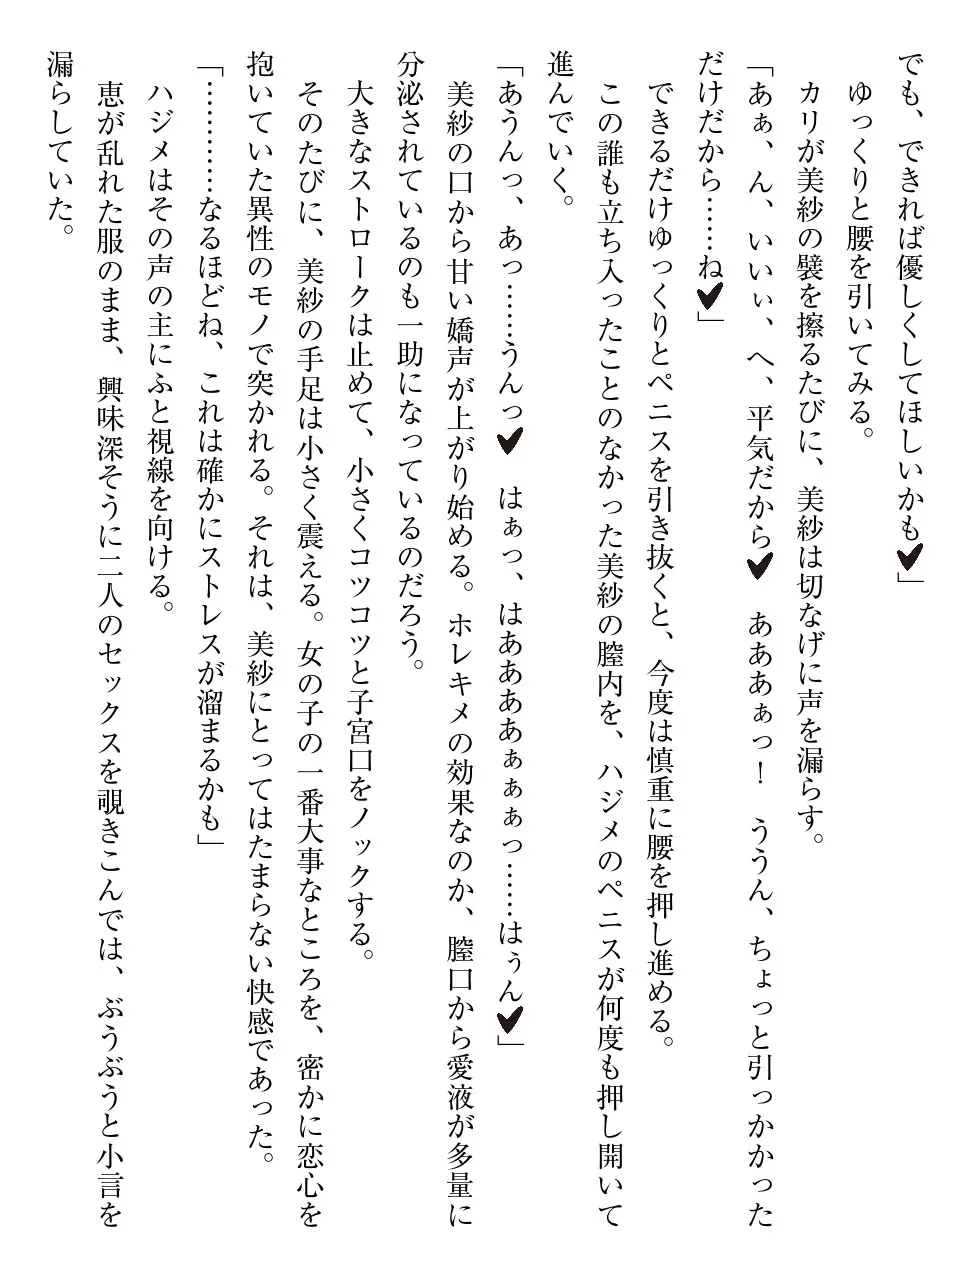 でも、できれば優しくしてほしいかも♥」
ゆっくりと腰を引いてみる。
カリが美紗の襞を擦るたびに、美紗は切なげに声を漏らす。
「あぁ、ん、いいぃ、へ、平気だから♥　あああぁっ！　ううん、ちょっと引っかかった
だけだから……ね♥」
できるだけゆっくりとペニスを引き抜くと、今度は慎重に腰を押し進める。
この誰も立ち入ったことのなかった美紗の膣内を、ハジメのペニスが何度も押し開いて
進んでいく。
「あうんっ、あっ……うんっ♥　はぁっ、はああああぁぁぁっ……はぅん♥」
美紗の口から甘い嬌声が上がり始める。ホレキメの効果なのか、膣口から愛液が多量に
分泌されているのも一助になっているのだろう。
大きなストロークは止めて、小さくコツコツと子宮口をノックする。
そのたびに、美紗の手足は小さく震える。女の子の一番大事なところを、密かに恋心を
抱いていた異性のモノで突かれる。それは、美紗にとってはたまらない快感であった。
「…………なるほどね、これは確かにストレスが溜まるかも」
ハジメはその声の主にふと視線を向ける。
恵が乱れた服のまま、興味深そうに二人のセックスを覗きこんでは、ぶうぶうと小言を
漏らしていた。